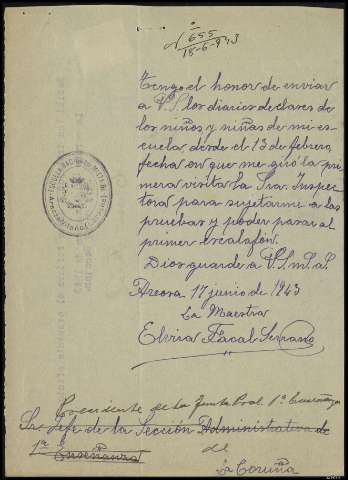 655
18-6-943
Tengo el honor de enviar
a V.S. los diarios de clases de
los niños y niñas de mi es-
cuela desde el 13 de febrero,
fecha en que me giró la pri-
mera visita la Sra. Inspec-
tora para sujetarme a las
pruebas y poder pasar al
primer escalafón.
Dios guarde a V.S. m. a.
17 junio de 1943
La Maestra
Elvira Facal Serrano
Presidente de la Junta Pral. 1ª Enseñanza
Sr. Jefe de la Sección Administrativa de
1ª Enseñanza
de
La Coruña